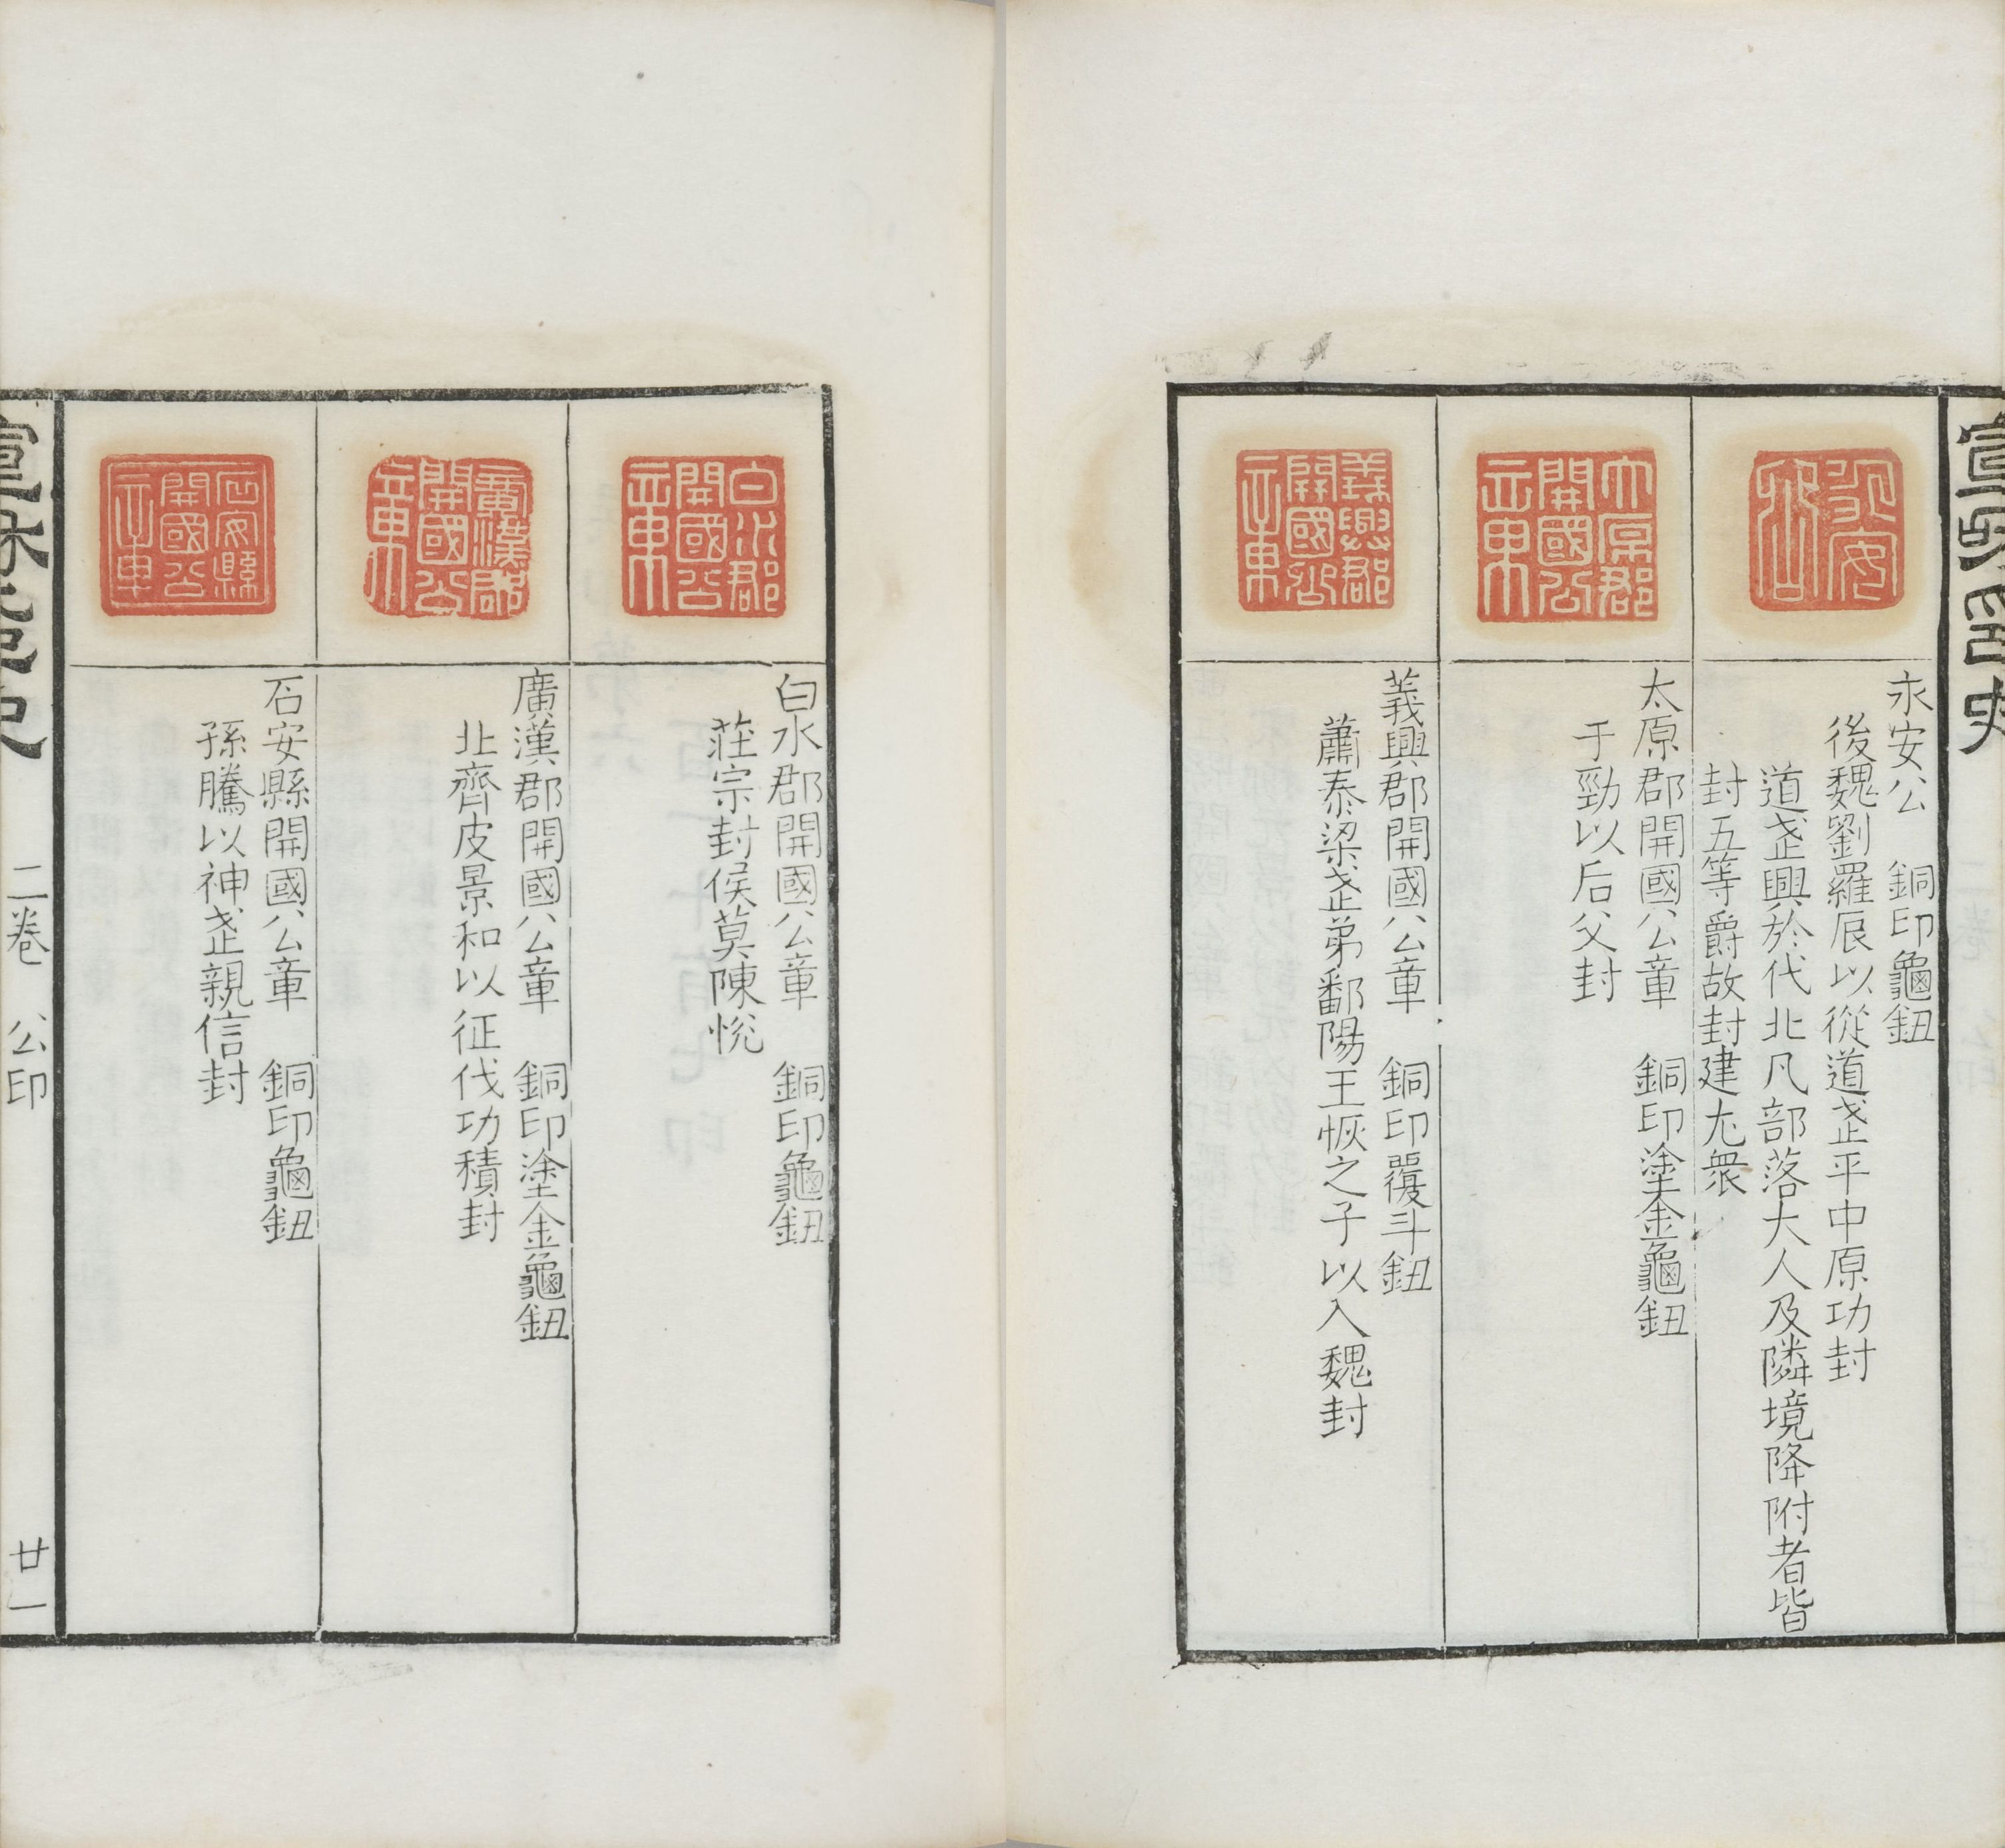 宣和印史
永安
永安公 銅印龜鈕
後魏劉羅辰以從道武平中原功封
道武興於代北凡部落大人及隣境降附者皆
封五等爵故封建尤衆
太原郡開國公章
太原郡開國公章 銅印塗金龜鈕
于勁以后父封
義興郡開國公章
義興郡開國公章 銅印覆斗鈕
蕭泰梁武弟鄱陽王恢之子以入魏封
白水郡開國公章
白水郡開國公章 銅印龜鈕
莊宗封侯莫陳悅
廣漢郡開國公章
廣漢郡開國公章 銅印塗金龜鈕
北齊皮景和以征伐功積封
石安縣開國公章
石安縣開國公章 銅印龜鈕
孫騰以神武親信封
二卷 公印 廿一